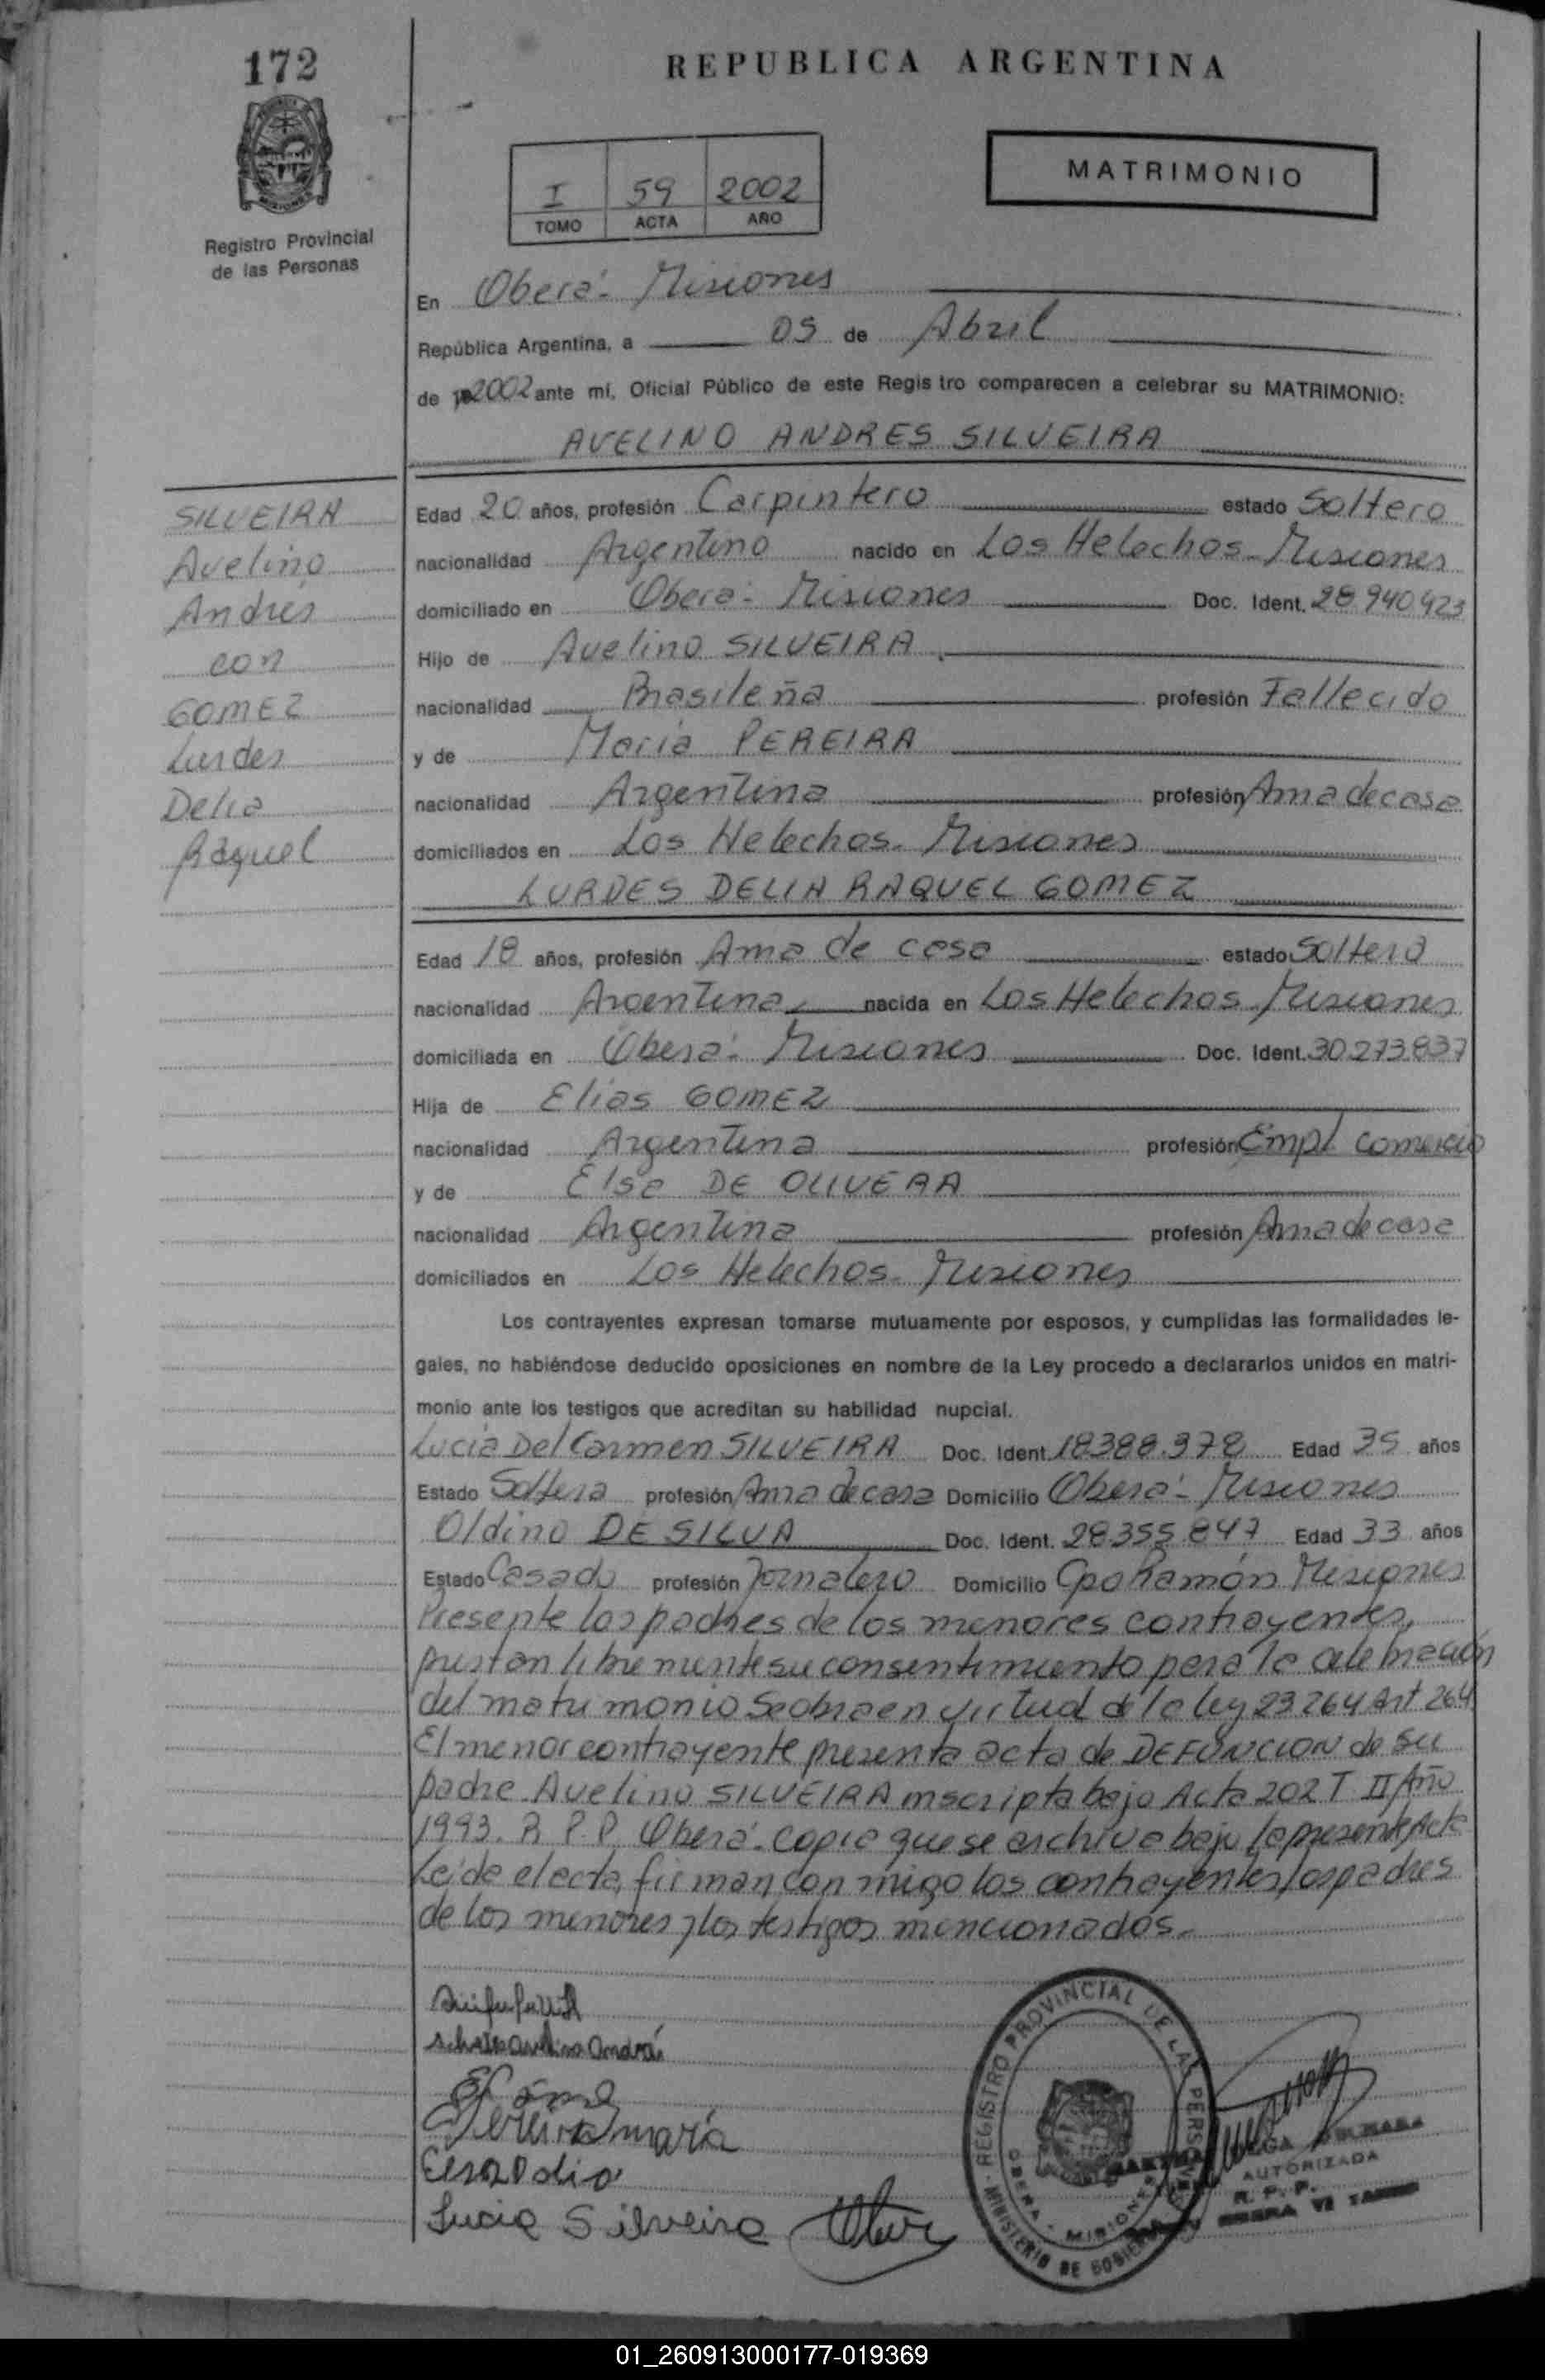 172
REPUBLICA ARGENTINA
Registro Provincial
de las Personas
I 59 2002
TOMO ACTA AÑO
MATRIMONIO
En Oberá - Misiones
República Argentina, a 05 de Abril
de 2002 ante mí, Oficial Público de este Registro comparecen a celebrar su MATRIMONIO:
AVELINO ANDRES SILVEIRA
SILVEIRA
Avelino
Andrés
con
GOMEZ
Lurdes
Delia
Raquel
Edad 20 años, profesión Carpintero estado Soltero
nacionalidad Argentino nacido en Los Helechos - Misiones
domiciliado en Oberá - Misiones Doc. Ident. 28 940.423
Hijo de Avelino SILVEIRA
nacionalidad Brasileña profesión Fallecido
y de Maria PEREIRA
nacionalidad Argentina profesión Ama de casa
domiciliados en Los Helechos - Misiones
LURDES DELIA RAQUEL GOMEZ
Edad 18 años, profesión Ama de casa estado Soltera
nacionalidad Argentina nacida en Los Helechos - Misiones
domiciliada en Oberá - Misiones Doc. Ident. 30.273.837
Hija de Elias GOMEZ
nacionalidad Argentina profesión Empl comercio
y de Elsa DE OLIVERA
nacionalidad Argentina profesión Ama de casa
domiciliados en Los Helechos - Misiones
Los contrayentes expresan tomarse mutuamente por esposos, y cumplidas las formalidades le-
gales, no habiéndose deducido oposiciones en nombre de la Ley procedo a declararlos unidos en matri-
monio ante los testigos que acreditan su habilidad nupcial.
Lucia Del Carmen SILVEIRA Doc. Ident. 18.388.378 Edad 35 años
Estado Soltera profesión Ama de casa Domicilio Oberá - Misiones
Oldino DE SILVA Doc. Ident. 28.355.847 Edad 33 años
Estado Casado profesión Jornalero Domicilio Cpo Ramón Misiones
Presente los padres de los menores contrayentes,
prestan libremente su consentimiento para la celebración
del matrimonio Se obra en virtud de la ley 23264 Art 264
El menor contrayente presenta acta de DEFUNCION de su
padre Avelino SILVEIRA inscripta bajo Acta 202 T II Año
1993. R. P. P. Oberá - Copia que se archiva bajo la presente Acta
Leida el acta, firman con migo los contrayentes, los padres
de los menores y los testigos mencionados.
Avelino Andrés
maria
Elsa
Lucia Silveira
REGISTRO PROVINCIAL DE LAS PERSONAS
OBERA - MISIONES
MINISTERIO DE GOBIERNO
AUTORIZADA
R. P. P.
01_260913000177-019369